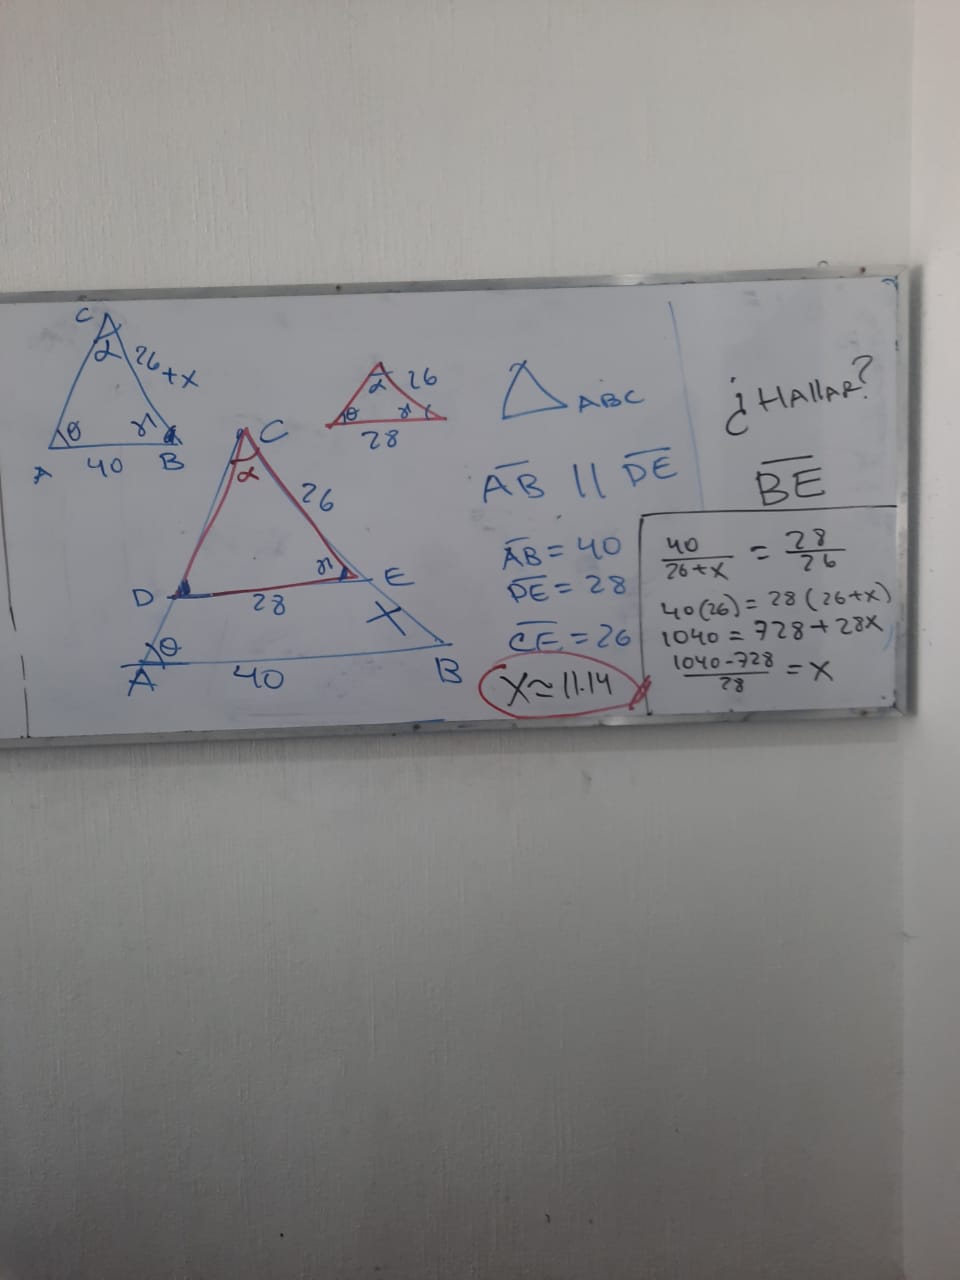 C
α 26+x
θ γ
A 40 B
α 26
θ γ
28
C
α
26
γ
D 28 E
X
θ
A 40 B
△ ABC
AB || DE
AB = 40
DE = 28
CE = 26
X ≈ 11.14
¿HAllAR?
BE
40/26+x = 28/26
40(26) = 28(26+x)
1040 = 728+28x
1040-728/28 = x